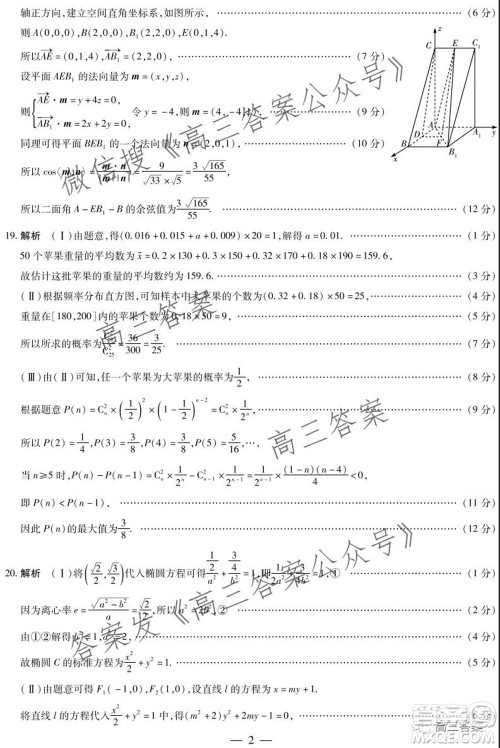 轴正方向,建立空间直角坐标系,如图所示, (6 分)
则 A(0,0,0),B(2,0,0),B₁(2,2,0),E(0,1,4).
所以AE=(0,1,4),AB₁=(2,2,0), (7 分)
设平面 AEB₁ 的法向量为 m=(x,y,z),
则{AE·m=y+4z=0, AB₁·m=2x+2y=0, 令 y=-4,则 m=(4,-4, (9 分)
同理可得平面 BEB₁ 的一个法向量为 (2,0,1), (10 分)
所以 cos⟨m,n⟩=m·n/|m||n|=9/(√33×√5)=3√165/55.
所以二面角 A-EB₁-B 的余弦值为 3√165/55. (12 分)
19. 解析 (Ⅰ)由题意,得(0.016+0.015+a+0.009)×20=1,解得 a=0.01. (1 分)
50 个苹果重量的平均数约 x̄=0.2×130+0.3×150+0.32×170+0.18×190=159.6.
故估计这批苹果的重量的平均数约为 159.6. (3 分)
(Ⅱ)根据频率分布直方图,可知样本中大苹果的个数为(0.32+0.18)×50=25, (4 分)
重量在[180,200]内的苹果个数为0.18×50=9, (5 分)
所以所求的概率为 /C²₂₅=36/300=3/25. (7 分)
(Ⅲ)由(Ⅱ)可知,任一个苹果为大苹果的概率为1/2,
根据题意 P(n)=C²ₙ×(1/2)²×(1-1/2)ⁿ⁻²=C²ₙ×1/2ⁿ, (9 分)
所以 P(2)=1/4,P(3)=3/8,P(4)=3/8,P(5)=5/16,…,
当 n≥5 时,P(n)-P(n-1)=C²ₙ×1/2ⁿ-C²ₙ₋₁×1/2ⁿ⁻¹=1/2ⁿ⁺¹×(1-n)(n-4)/ <0,
即 P(n)<P(n-1), (11 分)
因此 P(n)的最大值为3/8. (12 分)
20. 解析 (Ⅰ)将(√2/2,√3/2)代入椭圆方程可得 =1,即 =1,① (1 分)
因为离心率 e=√(a²-b²)/a=√2/2,所以 a²=2b²,② (2 分)
由①②解得b²=1,a²=2. (4 分)
故椭圆 C 的标准方程为x²/2+y²=1. (5 分)
(Ⅱ)由题意可得 F₁(-1,0),F₂(1,0),设直线 l 的方程为 x=my+1.
将直线 l 的方程代入x²/2+y²=1中,得(m²+2)y²+2my-1=0. (6 分)
— 2 —
C E A₁ A D F B B₁ x y z
微信搜《高三答案公众号》
高三答案
高三答案
答案发《高三答案公众号》
高三答案